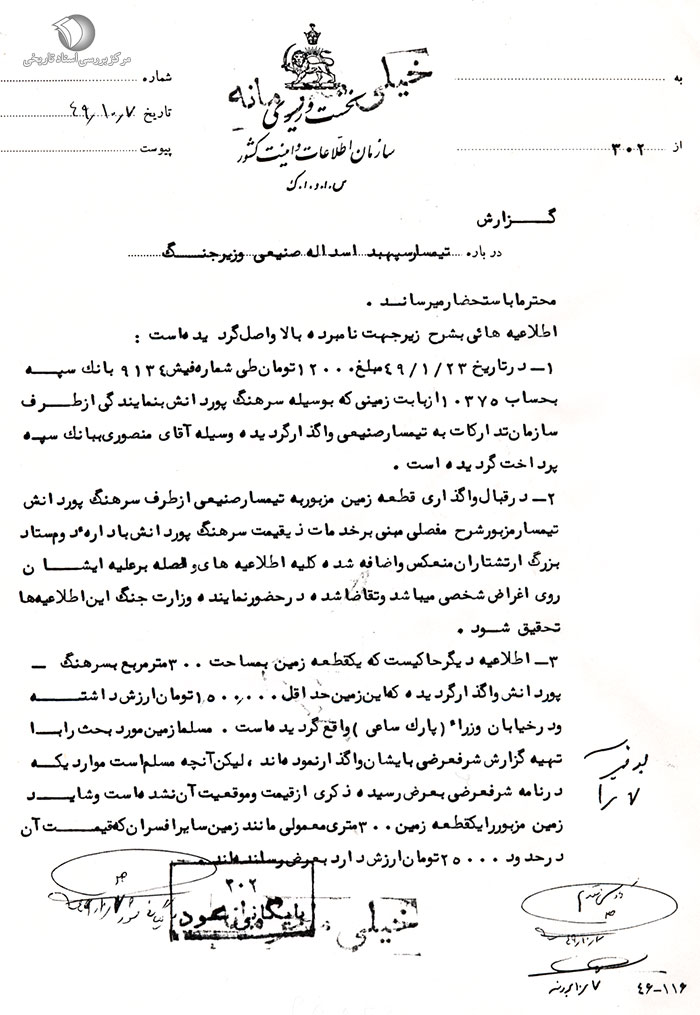 مرکز بررسی اسناد تاریخی
به
شماره
خیلی محرمانه
نخست وزیری
تاریخ ۴۹٫۱۰٫۷
سازمان اطلاعات و امنیت کشور
از ۳۰۲
پیوست
س.ا.و.ا.ک
گزارش
درباره تیمسار سپهبد اسداله صنیعی وزیر جنگ
محترما باستحضار میرساند .
اطلاعیه هائی بشرح زیر جهت نامبرده بالا واصل گردیده است :
۱ـ در تاریخ ۴۹/۱/۲۳ مبلغ ۱۲۰۰۰ تومان طی شماره فیش ۹۱۳۴ بانک سپه
بحساب ۱۰۳۷۵ از بابت زمینی که بوسیله سرهنگ پوردانش بنمایندگی از طرف
سازمان تدارکات به تیمسار صنیعی واگذار گردیده وسیله آقای منصوری ببانک سپه
پرداخت گردیده است .
۲ـ در قبال واگذاری قطعه زمین مزبور به تیمسار صنیعی از طرف سرهنگ پوردانش
تیمسار مزبور شرح مفصلی مبنی بر خدمات ذیقیمت سرهنگ پوردانش باداره دوم ستاد
بزرگ ارتشتاران منعکس و اضافه شده کلیه اطلاعیه های واصله بر علیه ایشان
روی اغراض شخصی میباشد و تقاضا شده در حضور نماینده وزارت جنگ این اطلاعیه ها
تحقیق شود .
۳ـ اطلاعیه دیگر حاکیست که یکقطعه زمین بمساحت ۳۰۰ متر مربع بسرهنگ ـ
پوردانش واگذار گردیده که این زمین حداقل ۱۵۰۰,۰۰۰ تومان ارزش داشته
و در خیابان وزراء (پارک ساعی ) واقع گردیده است . مسلما زمین مورد بحث را با
تهیه گزارش شرفعرضی بایشان واگذار نموده اند ، لیکن آنچه مسلم است مواردیکه
در نامه شرفعرضی بعرض رسیده ذکری از قیمت و موقعیت آن نشده است و شاید
زمین مزبور را یکقطعه زمین ۳۰۰ متری معمولی مانند زمین سایر افسران که قیمت آن
در حدود ۲۵۰۰۰ تومان ارزش دارد بعرض رسانده اند .
۳۰۲
بایگانی شود
خیلی محرمانه
۴۶-۱۱۶